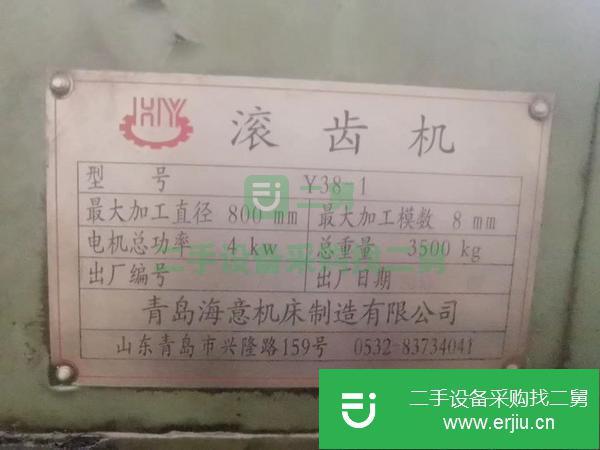 HY
滚齿机
型 号 Y38-1
最大加工直径 800 mm 最大加工模数 8 mm
电机总功率 4 kw 总重量 3500 kg
出厂编号 出厂日期
青岛海意机床制造有限公司
山东青岛市兴隆路159号 0532-83734041
二舅
二手设备采购找二舅
二手设备采购找二舅
www.erjiu.cn